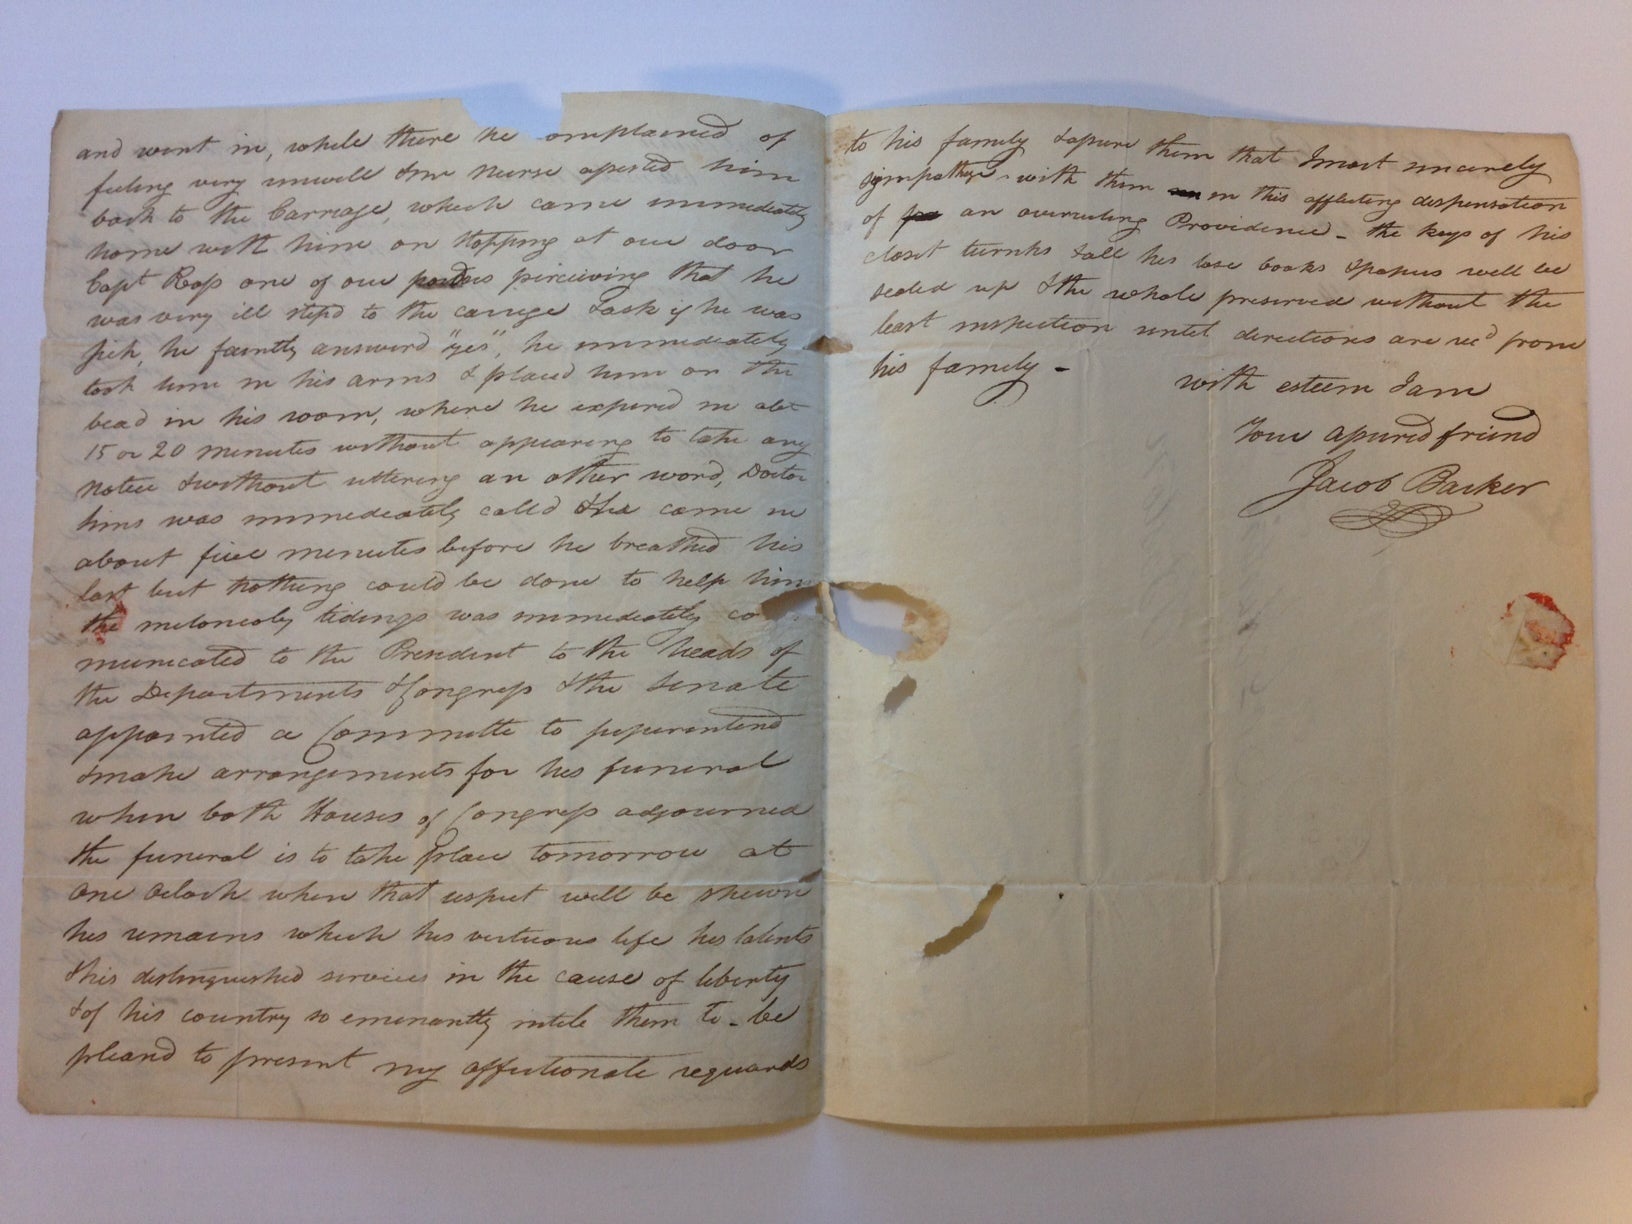 and went in, while there he complained of
feeling very unwell & Mr Nurse asisted him
back to the Carriage, which came immediately
home with him on stopping at our door
Capt Ross one of our perciving that he
was very ill step'd to the carrige & ask if he was
sick, he faintly answerd "yes", he immediately
took him in his arms & placed him on the
bead in his room, where he expired in abt
15 or 20 minutes without appearing to take any
notice & without uttering an other word, Doctor
Sims was immediately calld & he came in
about five minutes before he breathed his
last but nothing could be done to help him
the meloncoly tidings was immediately com
municated to the President to the heads of
the Departments & Congress & the Senate
appointed a Committe to superintend
& make arrangements for his funeral
when both Houses of Congress adjourned
the funeral is to take place tomorrow at
One Oclock when that respect will be shewn
his remains which his virtuous life his talents
& his distinguished services in the cause of liberty
& of his country so emenantly intile them to - be
pleasd to present my affectionate reguards
to his family & assure them that I most sincerely
simpathize with them in this afflicting dispensation
of an overruling Providence - the keys of his
closet turnks & all his lose books & papers will be
sealed up & the whole preserved without the
least inspection until directions are recd from
his family -
with esteem I am
Your assured friend
Jacob Barker